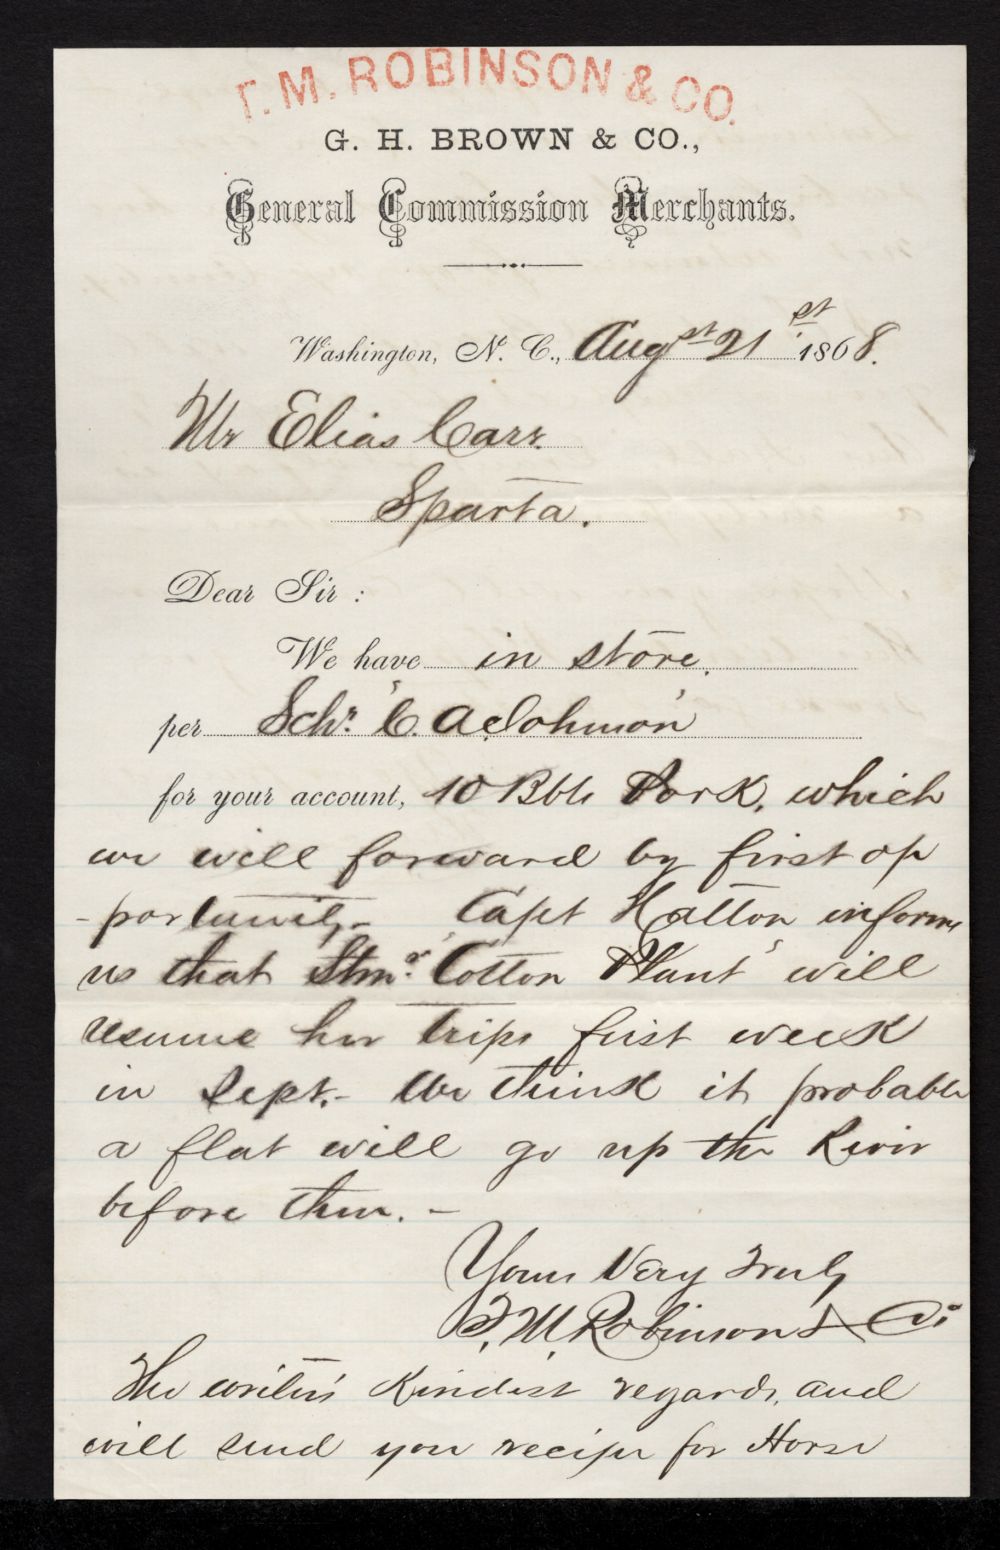 T. M. ROBINSON & CO.
G. H. BROWN & CO.,
General Commission Merchants.
Washington, N. C., Augst 21st 1868.
Mr Elias Carr.
Sparta.
Dear Sir :
We have in store,
per Schr. "C. A. Johnson"
for your account, 10 Bbls Pork, which
we will forward by first op
-portunity- Capt Hatton informs
us that Stmr. "Cotton Plant" will
resume her trips first week
in Sept.- We think it probable
a flat will go up the River
before then. -
Yours Very Truly
T. M. Robinson & Co.
The writer's kindest regards, and
will send you recipe for Horse